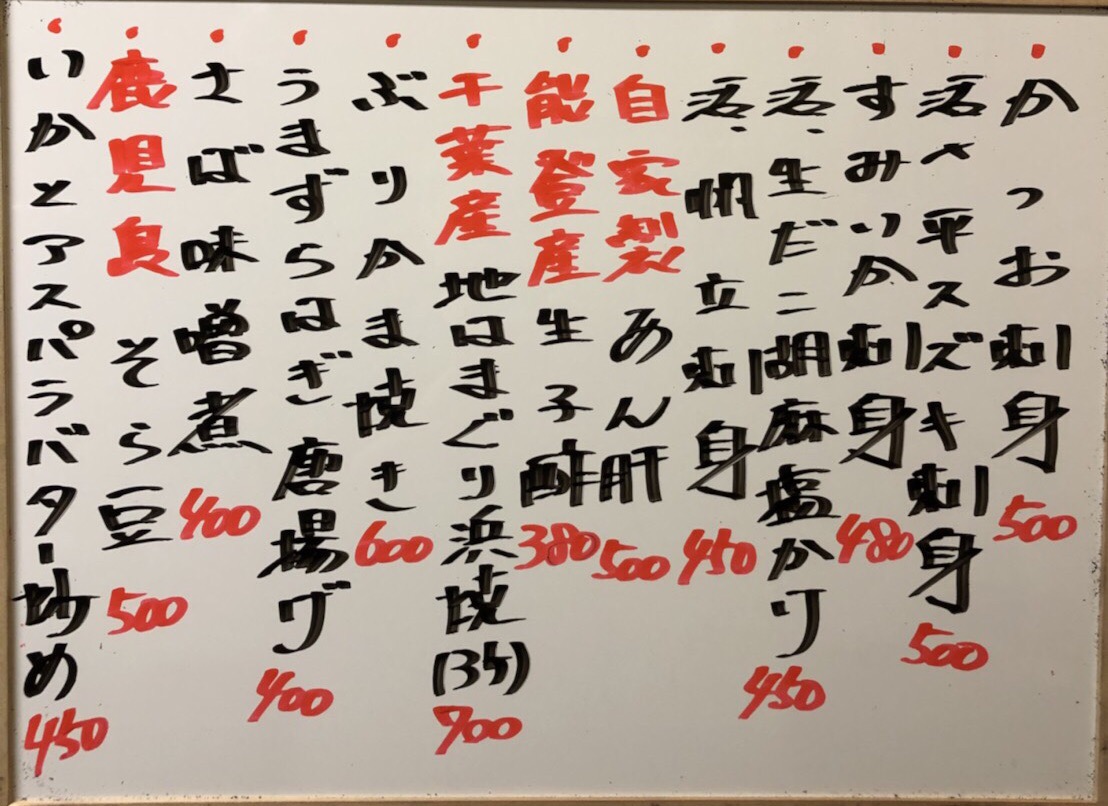 かつお刺身 500
活〆平スズキ刺身 500
すみいか刺身 480
活、生だこ胡麻塩かり 450
活、帆立刺身 450
自家製 あん肝 500
能登産 生子酢 380
千葉産 地はまぐり浜焼(3ケ) 700
ぶりかま焼き 600
うまずらはぎ唐揚げ 400
さば味噌煮 400
鹿児島 そら豆 500
いかとアスパラバター炒め 450